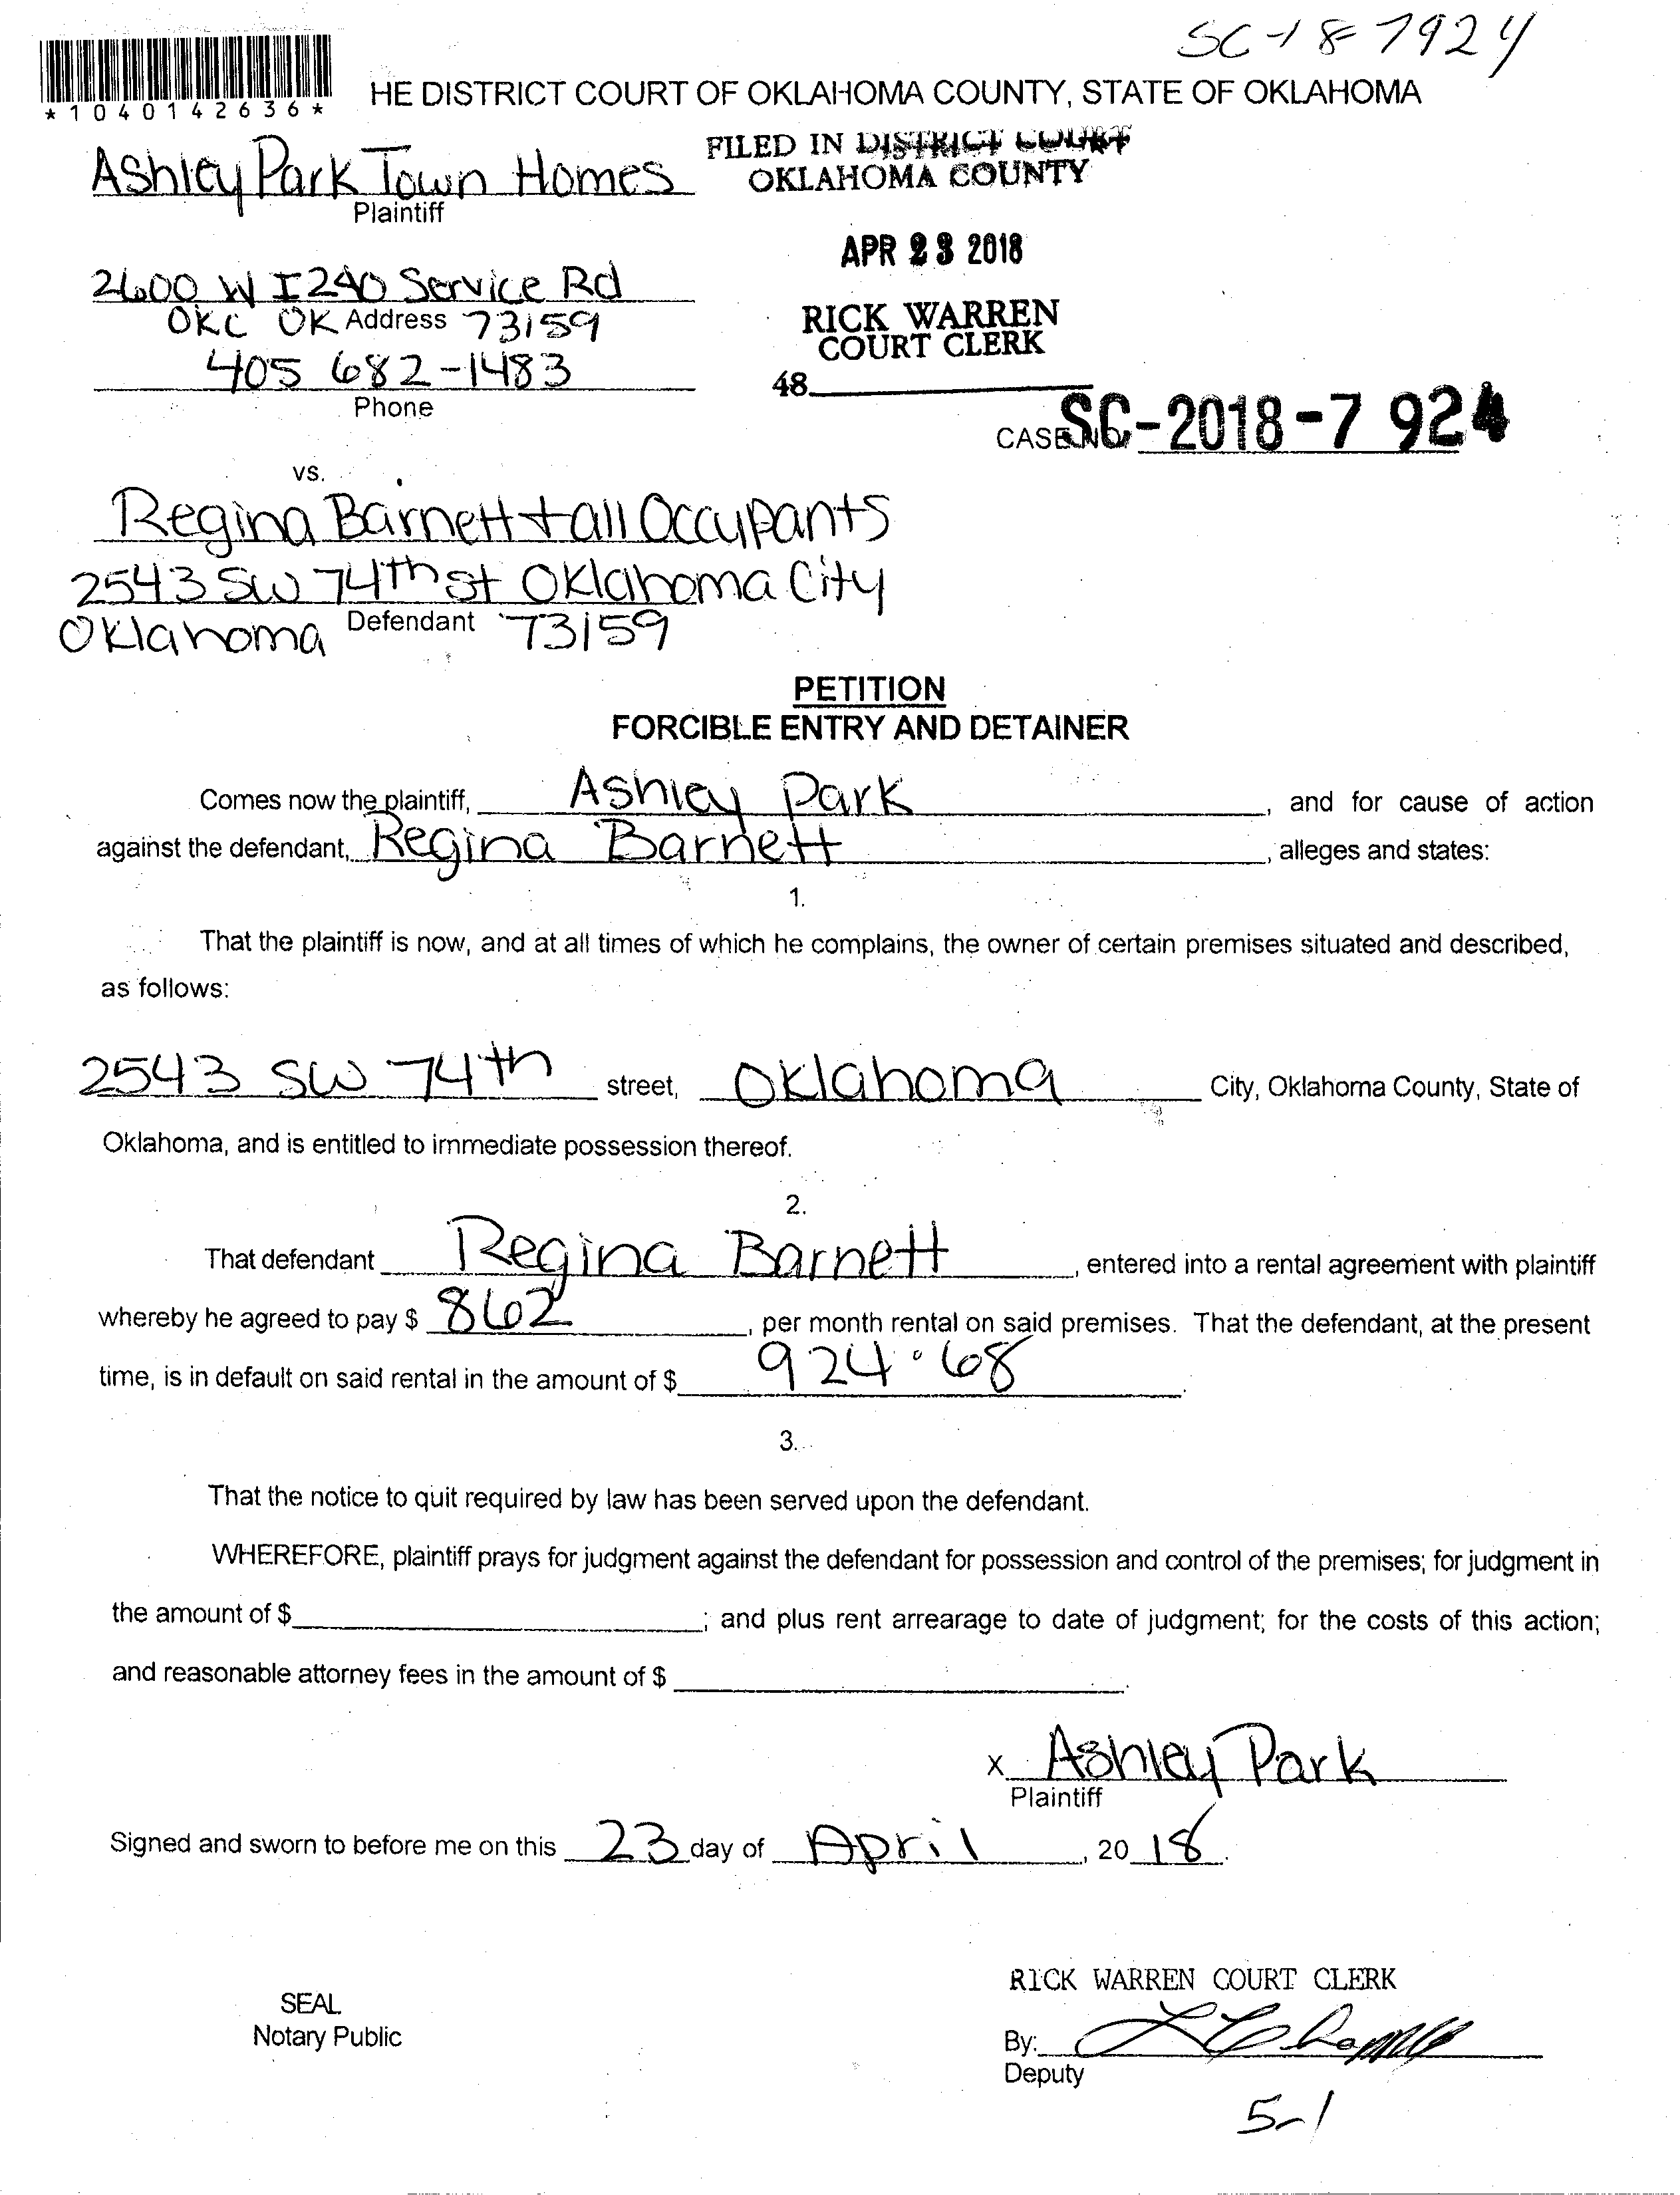 SC-18-7924
*1040142636*
HE DISTRICT COURT OF OKLAHOMA COUNTY, STATE OF OKLAHOMA
Ashley Park Town Homes
Plaintiff
FILED IN DISTRICT COURT
OKLAHOMA COUNTY
APR 23 2018
RICK WARREN
COURT CLERK
48
2600 W I240 Service Rd
OKC OK Address 73159
405 682-1483
Phone
CASE NO. SC-2018-7924
vs.
Regina Barnett + all Occupants
2543 SW 74th st Oklahoma City
Oklahoma Defendant 73159
PETITION
FORCIBLE ENTRY AND DETAINER
Comes now the plaintiff, Ashley Park, and for cause of action
against the defendant, Regina Barnett, alleges and states:
1.
That the plaintiff is now, and at all times of which he complains, the owner of certain premises situated and described,
as follows:
2543 SW 74th street, Oklahoma City, Oklahoma County, State of
Oklahoma, and is entitled to immediate possession thereof.
2.
That defendant Regina Barnett, entered into a rental agreement with plaintiff
whereby he agreed to pay $ 862, per month rental on said premises. That the defendant, at the present
time, is in default on said rental in the amount of $ 924.68.
3.
That the notice to quit required by law has been served upon the defendant.
WHEREFORE, plaintiff prays for judgment against the defendant for possession and control of the premises; for judgment in
the amount of $; and plus rent arrearage to date of judgment; for the costs of this action;
and reasonable attorney fees in the amount of $.
x Ashley Park
Plaintiff
Signed and sworn to before me on this 23 day of April, 2018.
RICK WARREN COURT CLERK
SEAL
Notary Public
By:
Deputy
5-1